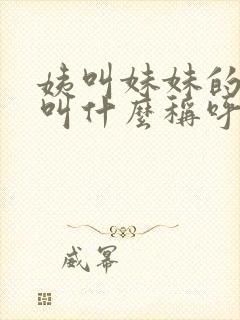 姨叫妹妹的
叫什麼稱呼
威幂